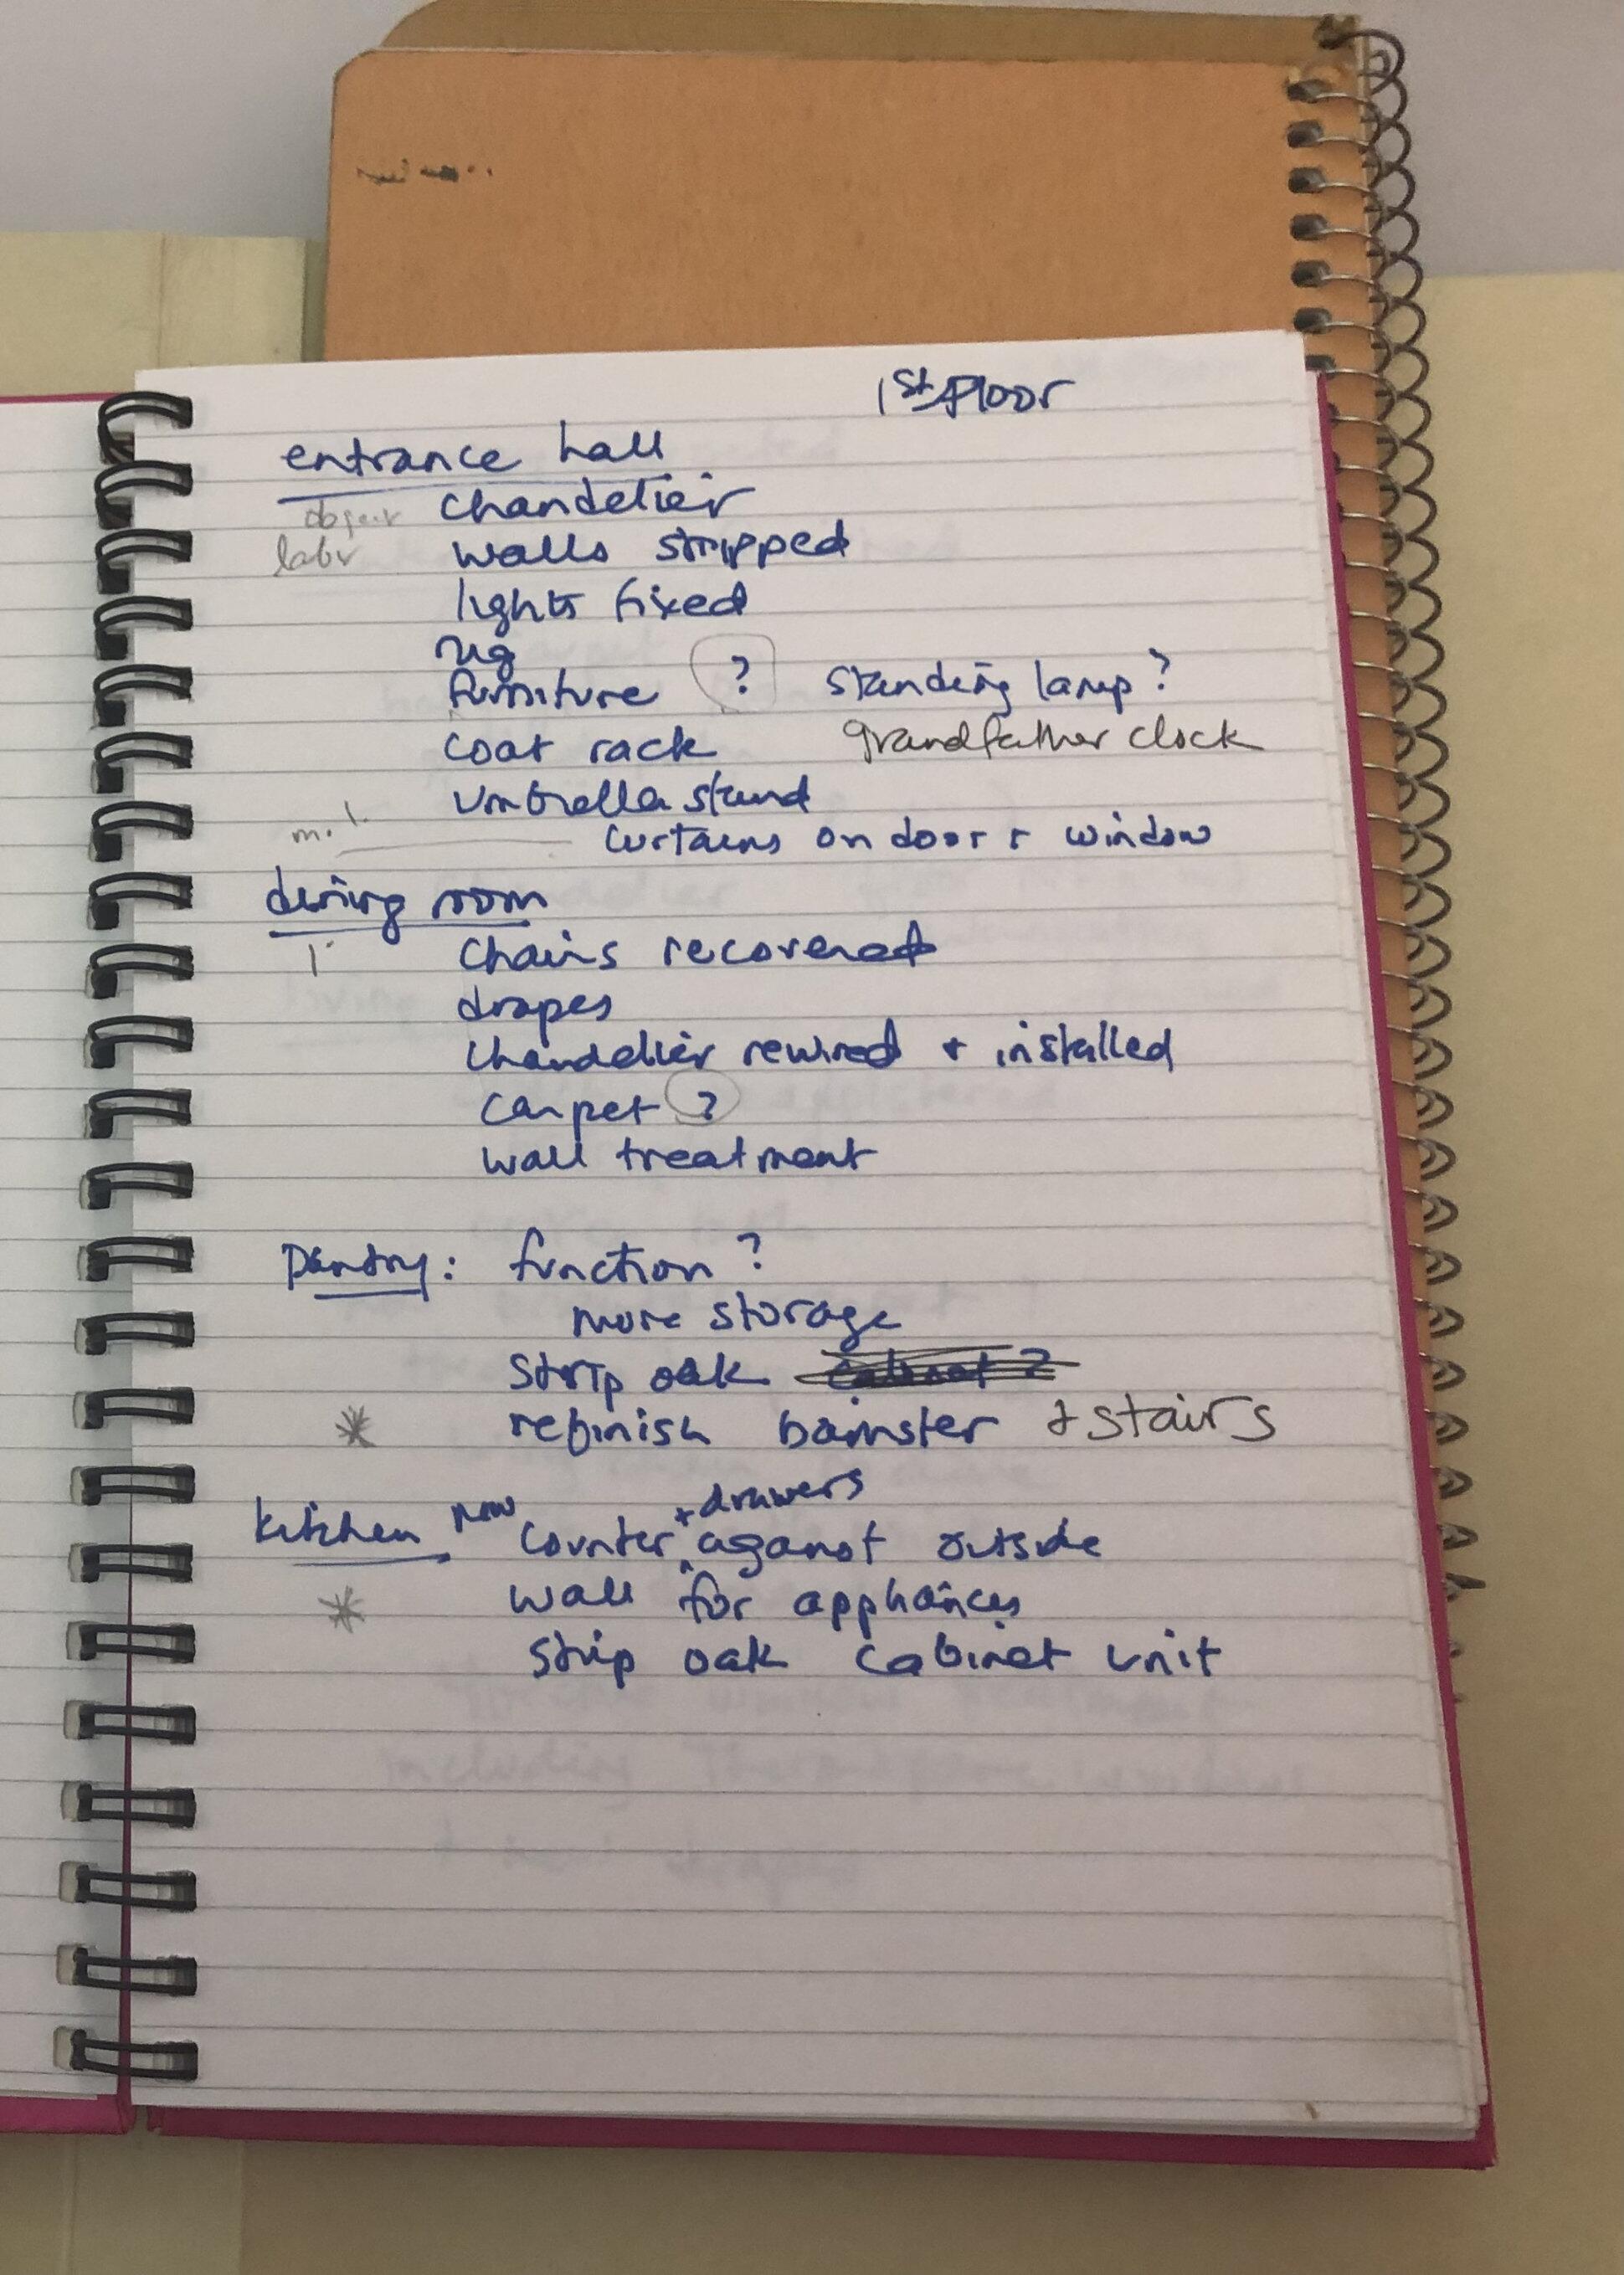 1st floor
entrance hall
object chandelier
labr walls stripped
lights fixed
rug
furniture ? standing lamp?
coat rack grandfather clock
umbrella stand
m.l. curtains on door + window
dining room
chairs recovered
drapes
chandelier rewired + installed
carpet ?
wall treatment
Pantry: function?
more storage
strip oak
* refinish banister + stairs
+ drawers
kitchen new counter against outside
* wall for appliances
strip oak cabinet unit